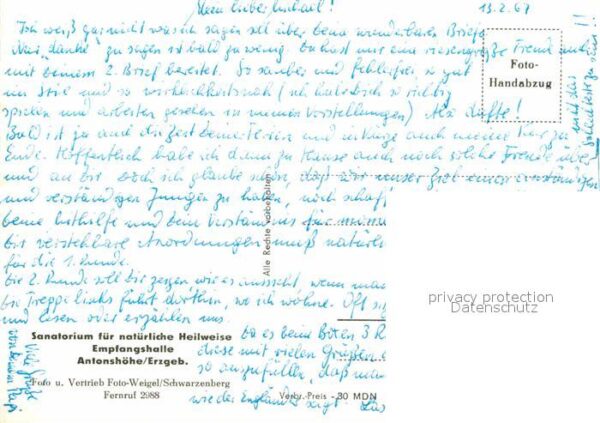 Mein lieber Michael!
13.2.67
Ich weiß gar nicht was ich sagen soll über deine wunderbaren Briefe
Nur "danke" zu sagen ist bald zu wenig. Du hast mir eine riesengroße Freude
mit deinem 2. Brief bereitet. So sauber und fehlerfrei, so gut
im Stil und so wirklichkeitsnah (ich habe dich so richtig
spielen und arbeiten gesehen in meinen Vorstellungen) Also dufte!
Bald ist ja auch die Zeit der Ferien und auch meine Kur zu
Ende. Hoffentlich habe ich dann zu Hause auch noch solche Freude
und an dir doch ich glaube schon, daß wir unser Ziel einen anständigen
und verständigen Jungen zu haben, noch schaff
deine Mithilfe und dein Verständnis für
dir verstehbare Anordnungen muß natürl
für die 1. Runde.
die 2. Runde soll dir zeigen, wie es aussieht, wenn man
die Treppe links führt dorthin, wo ich wohne. Oft
und lesen oder erzählen uns.
Da es beim 3 R
diese mit vielen Grüßen
so auszufüllen, daß
wie der Engländer sagt!
Viele Grüße
von deinem Papi
Foto-
Handabzug
Alle Rechte vorbehalten
privacy protection
Datenschutz
Sanatorium für natürliche Heilweise
Empfangshalle
Antonshöhe/Erzgeb.
Foto u. Vertrieb Foto-Weigel/Schwarzenberg
Fernruf 2988
Verbr.-Preis -30 MDN